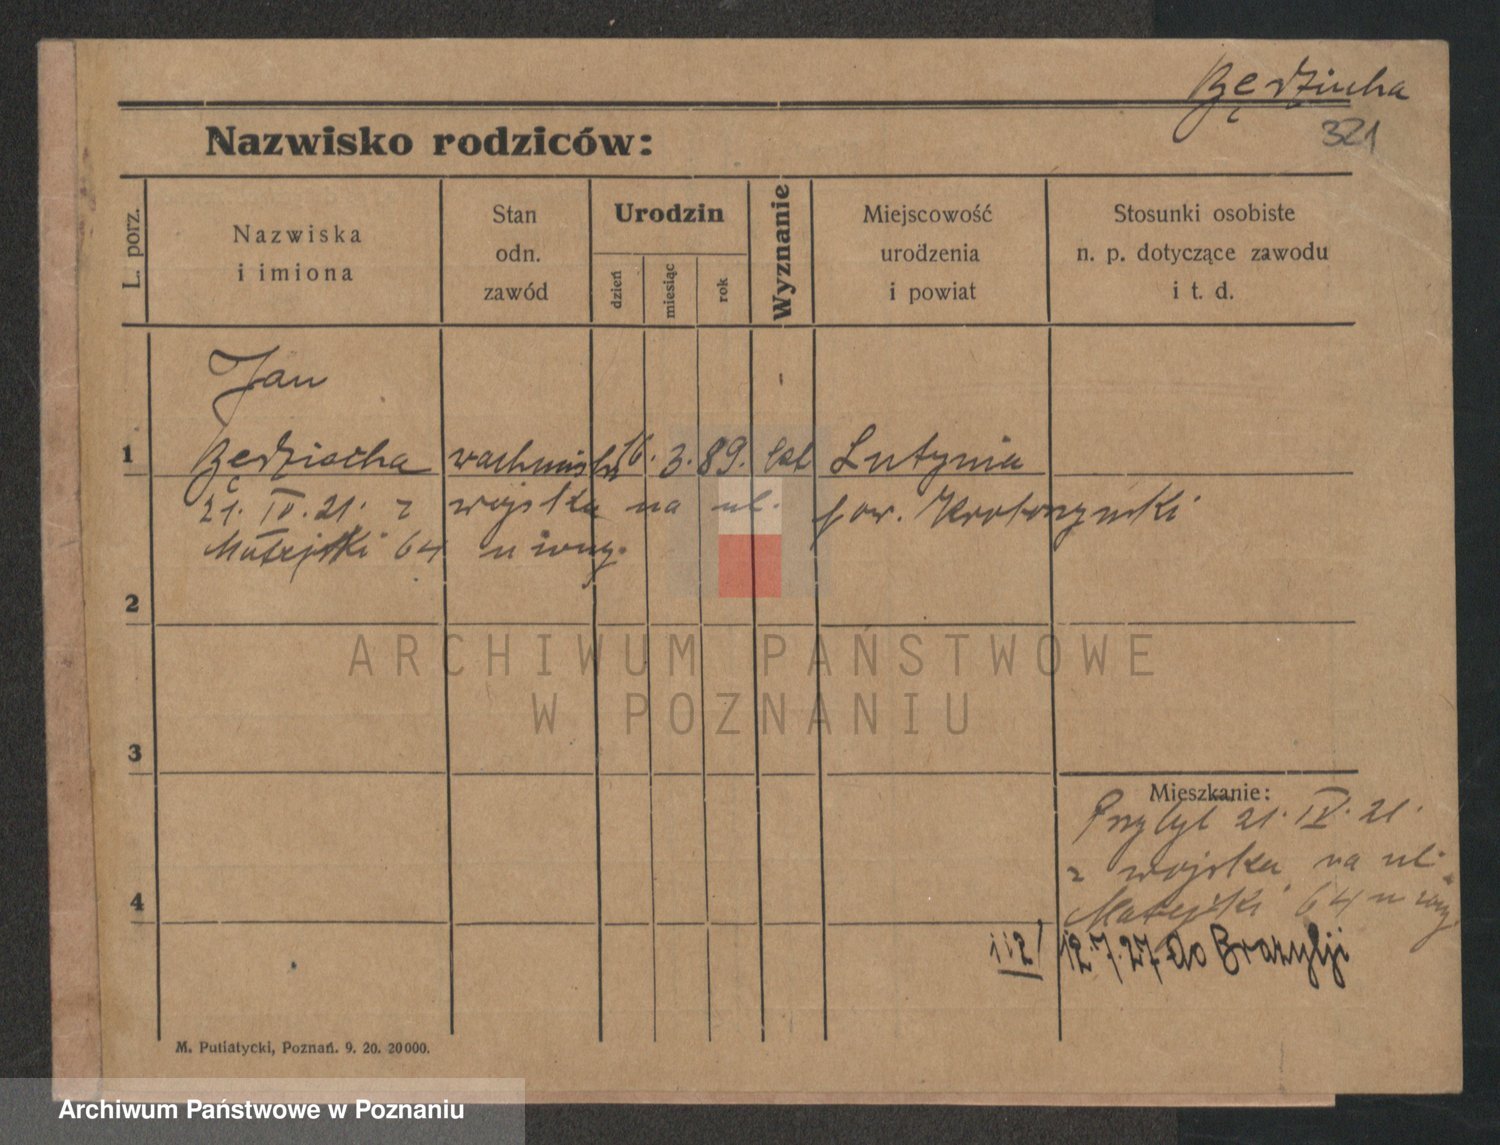 Będziucha
321
Nazwisko rodziców:
L. porz.
Nazwiska
i imiona
Stan
odn.
zawód
Urodzin
dzień
miesiąc
rok
Wyznanie
Miejscowość
urodzenia
i powiat
Stosunki osobiste
n. p. dotyczące zawodu
i t. d.
Jan
1 Będziocha wachmistr 16. 3. 89. kat Lutynia
21. IV. 21. z wojska na ul. pow. Krotoszyński
Matejki 64 u
2
ARCHIWUM PAŃSTWOWE
W POZNANIU
3
Mieszkanie:
Przybył 21. IV. 21.
z wojska na ul.
4 Matejki 64 u
112/ 12.7.27 do Brazylji
M. Putiatycki, Poznań. 9. 20. 20000.
Archiwum Państwowe w Poznaniu